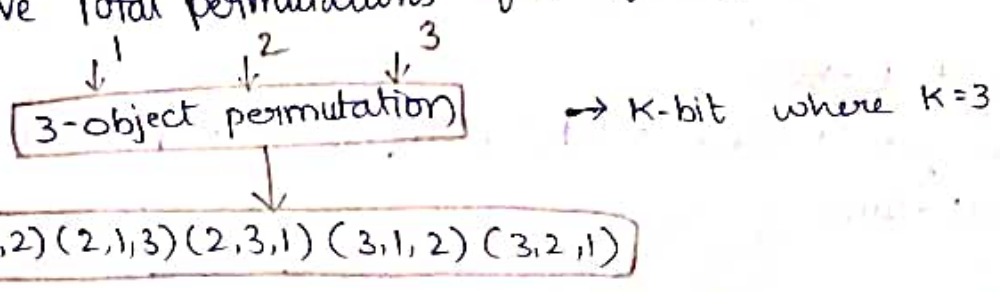 Total permutations
1 2 3
3-object permutation → K-bit where K=3
,2) (2,1,3) (2,3,1) (3,1,2) (3,2,1)